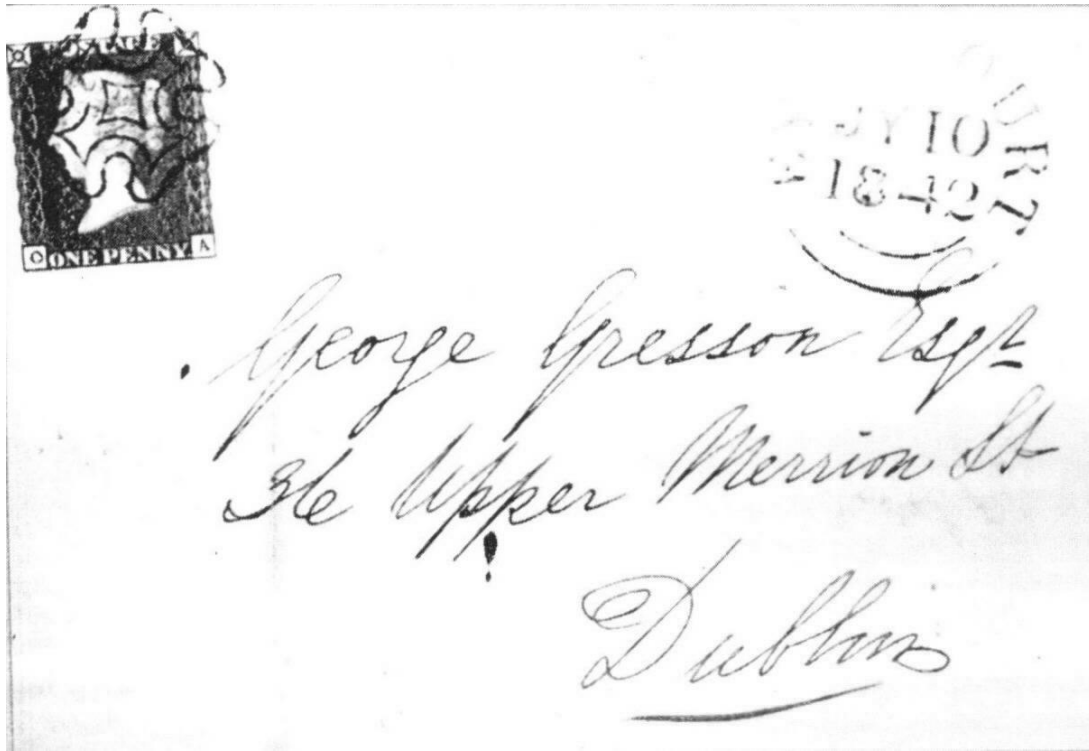 POSTAGE
O ONE PENNY A
JY 10
1842
George Gresson Esqr
36 Upper Merrion St
Dublin